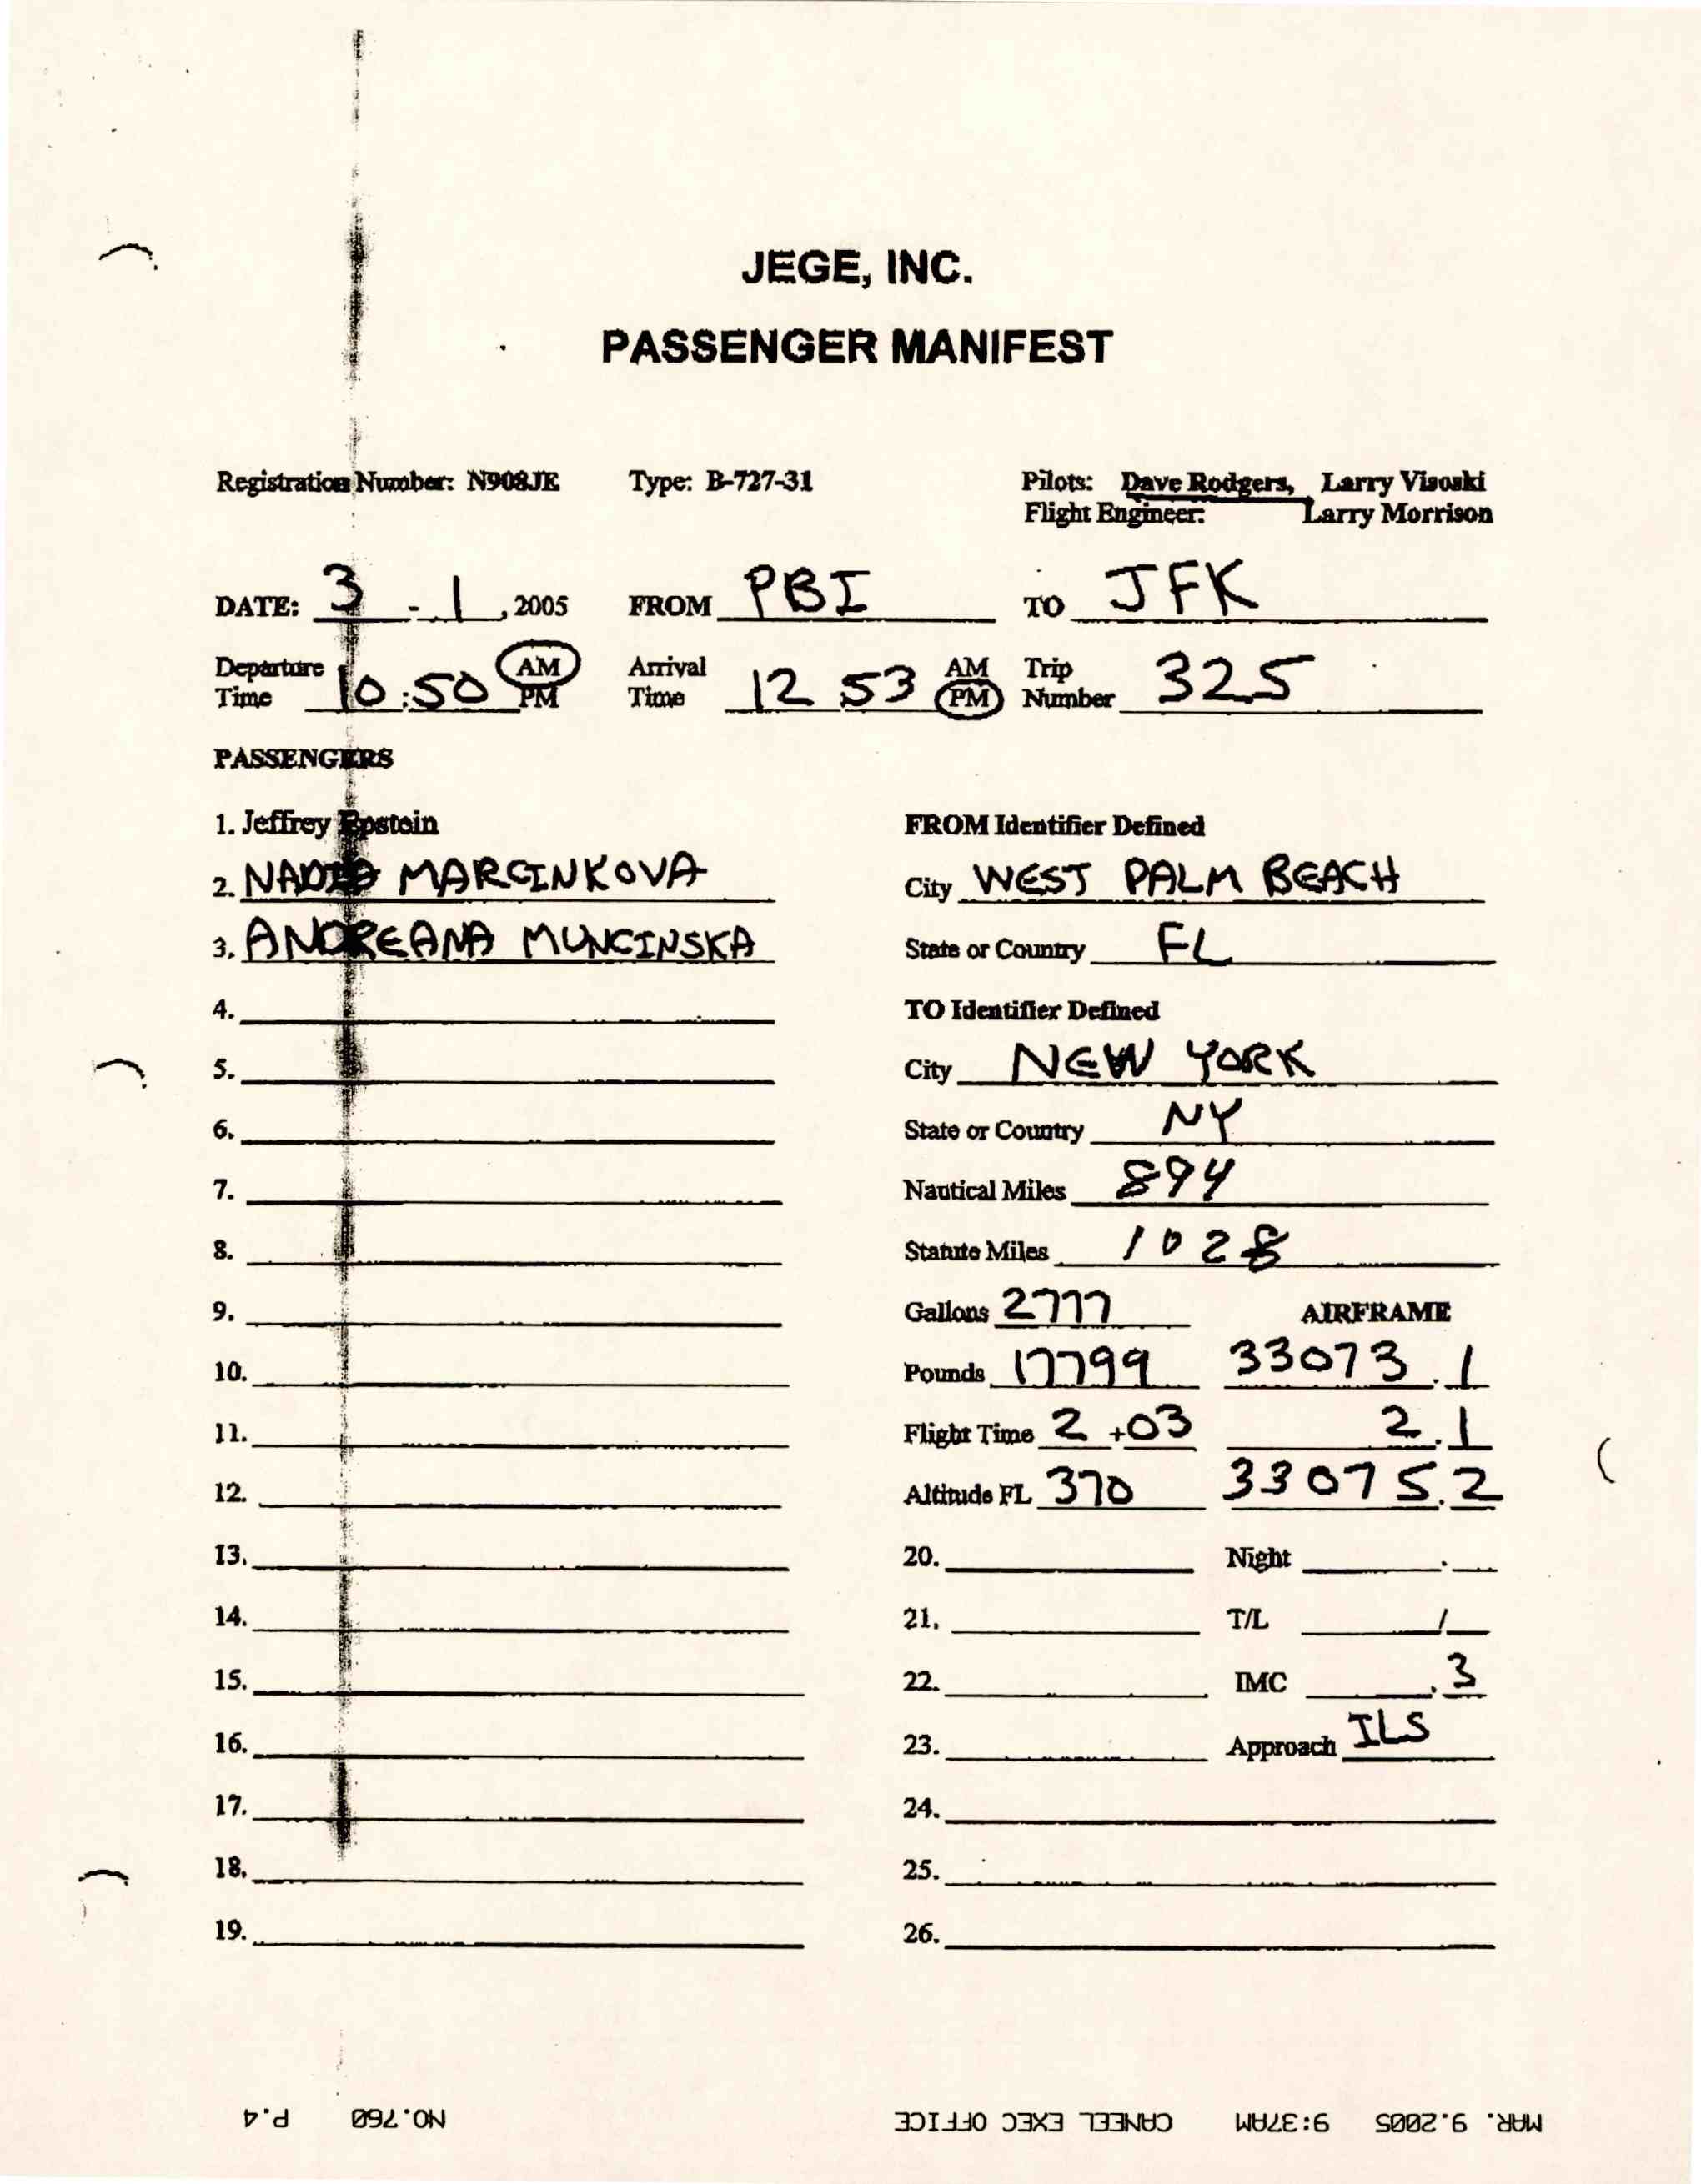 JEGE, INC.
PASSENGER MANIFEST
Registration Number: N908JE Type: B-727-31 Pilots: Dave Rodgers, Larry Visoski
Flight Engineer: Larry Morrison
DATE: 3 - 1, 2005 FROM PBI TO JFK
Departure Time 10:50 AM PM Arrival Time 12 53 AM PM Trip Number 325
PASSENGERS
1. Jeffrey Epstein
2. NADIA MARCINKOVA
3. ANDREANA MUNCINSKA
4.
5.
6.
7.
8.
9.
10.
11.
12.
13.
14.
15.
16.
17.
18.
19.
FROM Identifier Defined
City WEST PALM BEACH
State or Country FL
TO Identifier Defined
City NEW YORK
State or Country NY
Nautical Miles 894
Statute Miles 1028
Gallons 2777 AIRFRAME
Pounds 17799 33073.1
Flight Time 2+03 2.1
Altitude FL 370 33075.2
20. Night .
21. T/L /
22. IMC .3
23. Approach ILS
24.
25.
26.
MAR. 9.2005 9:37AM CANEEL EXEC OFFICE NO.760 P.4